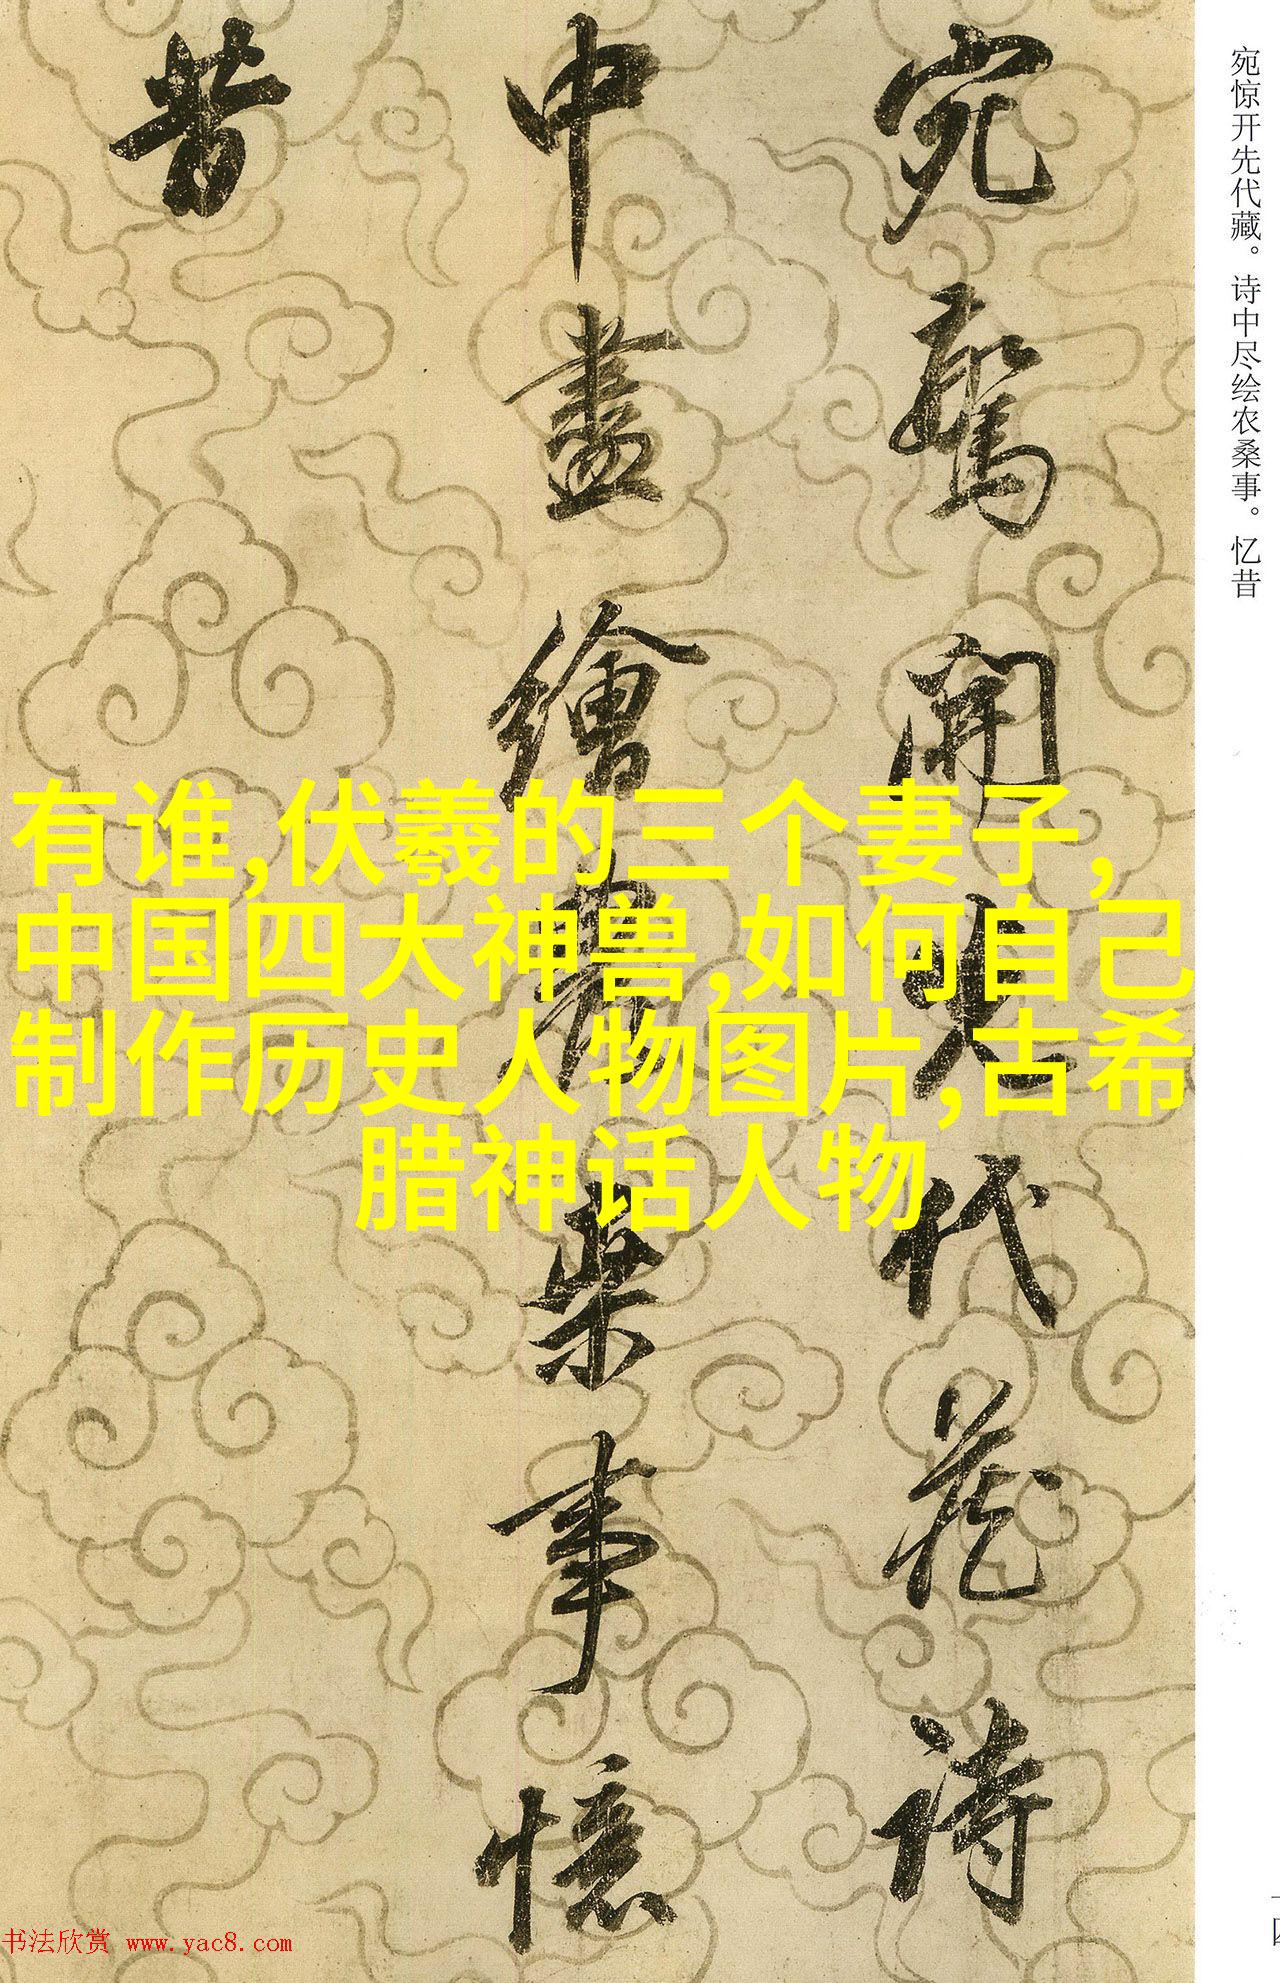 宛驚開先代藏詩
中盡繪農桑事憶
昔
宛惊开先代藏。诗中尽绘农桑事。忆昔
有谁,伏羲的三个妻子,
中国四大神兽,如何自己
制作历史人物图片,古希
腊神话人物
书法欣赏 www.yac8.com